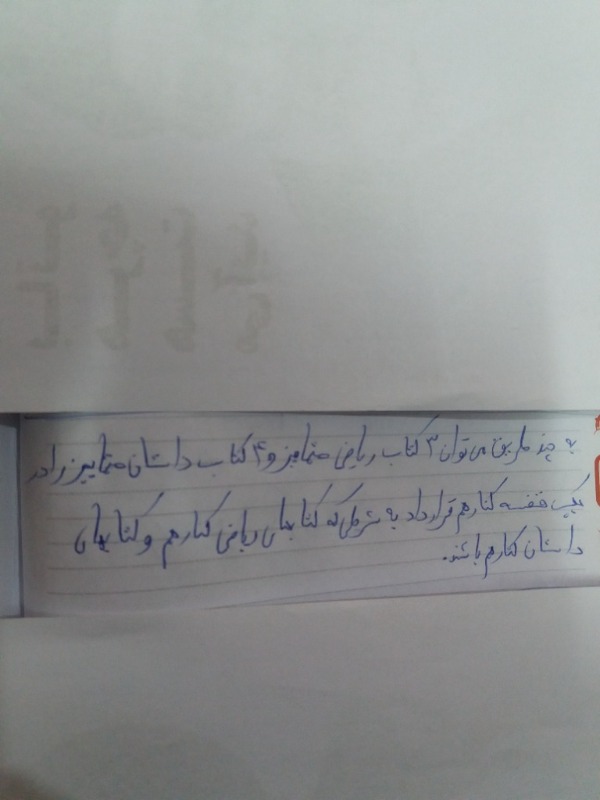 به چند طریق می توان ۳ کتاب ریاضی متمایز و ۴ کتاب داستان متمایز را در
یک قفسه کنار هم قرار داد به شرطی که کتابهای ریاضی کنار هم و کتابهای
داستان کنار هم باشند.